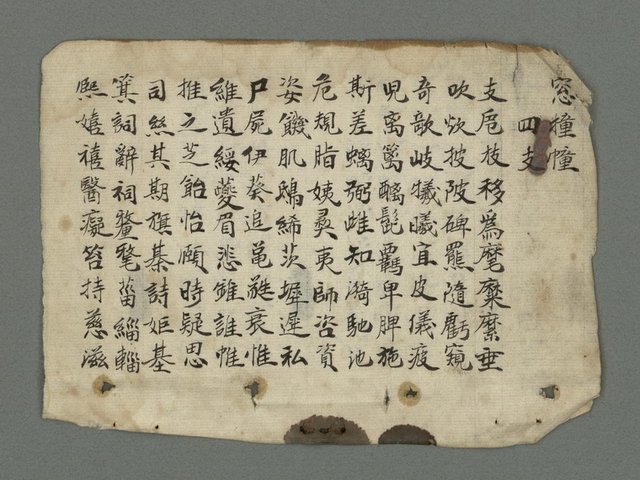 窓撞幢
四支
支卮枝移為麾糜縻垂
吹炊披陂碑羆隨虧窺
奇欹岐犧曦宜皮儀疲
兒离篱醨髭羈卑脾施
斯差螭弥雌知漪馳池
危規脂姨彝夷師咨資
姿饑肌鴟絺茨墀遲私
尸屍伊葵追黽蕤衰惟
維遺綏夔眉悲錐誰帷
推之芝飴怡頤時疑思
司絲其期旗棊詩姬基
箕詞辭祠釐氂甾緇輜
熙嬉禧醫癡笞持慈滋